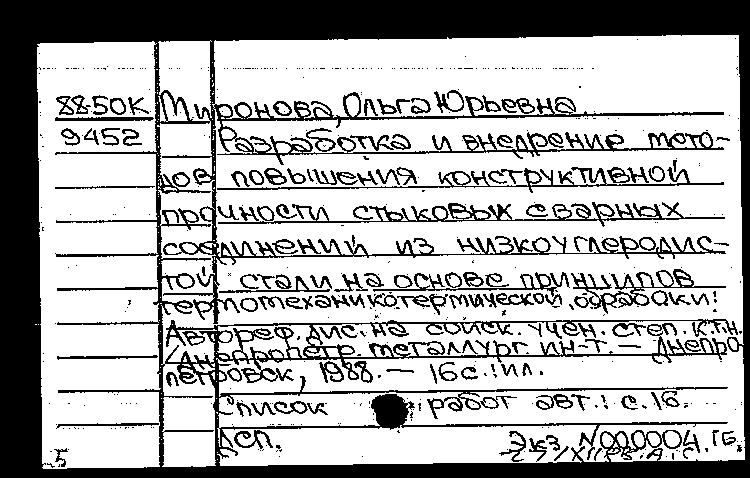 88-50К Миронова, Ольга Юрьевна
9452 Разработка и внедрение мето-
дов повышения конструктивной
прочности стыковых сварных
соединений из низкоуглеродис-
той стали на основе принципов
термомеханикотермической обработки:
Автореф. дис. на соиск. учен. степ. к.т.н.
/Днепропетр. металлург. ин-т. — Днепро-
петровск, 1988. — 16с.: ил.
Список работ авт.: с.16.
ДСП. Экз. N000004. ГБ.
5